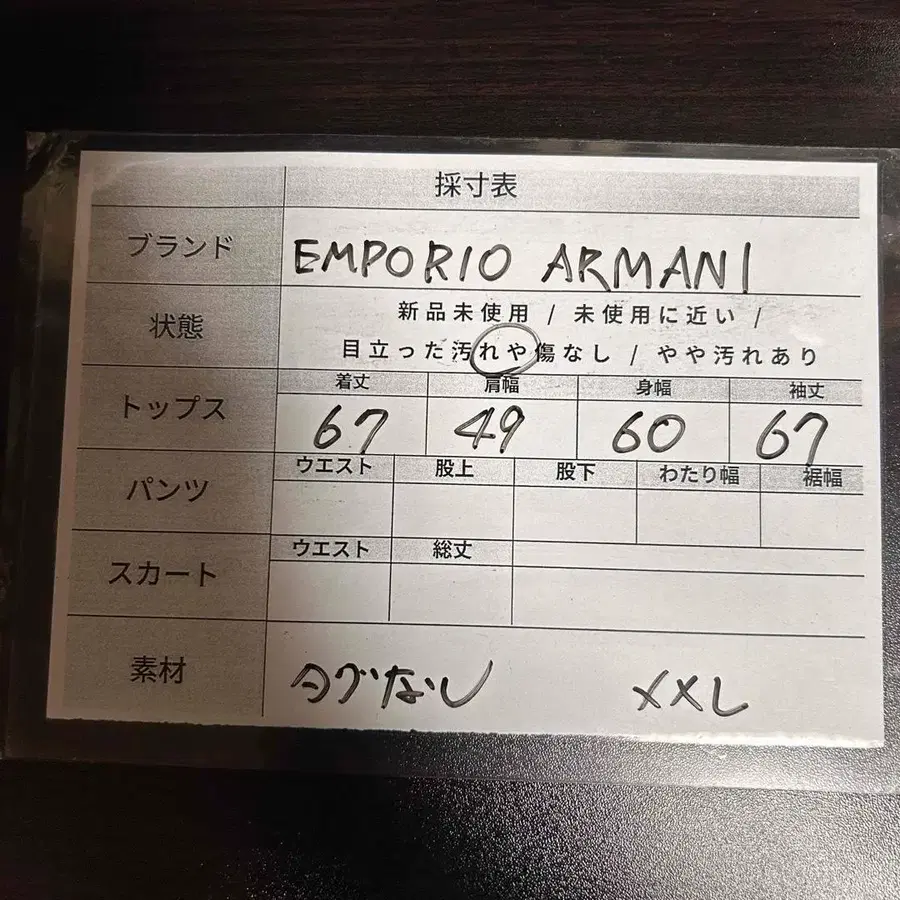 採寸表
ブランド EMPORIO ARMANI
状態 新品未使用 / 未使用に近い /
目立った汚れや傷なし / やや汚れあり
トップス 着丈 肩幅 身幅 袖丈
67 49 60 67
パンツ ウエスト 股上 股下 わたり幅 裾幅
スカート ウエスト 総丈
素材 タグなし XXL